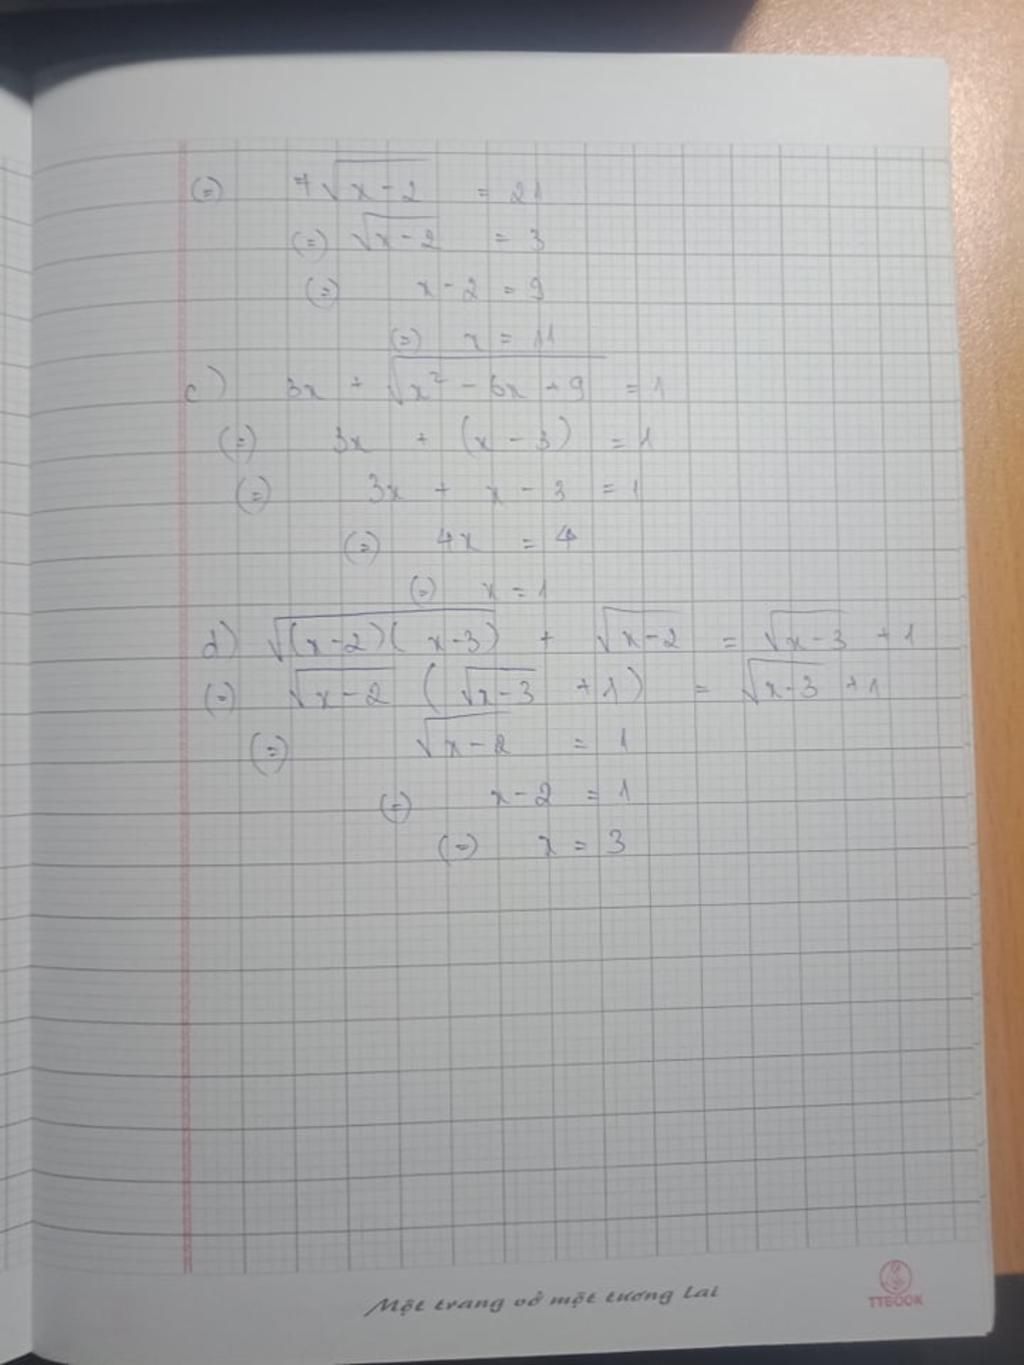 (=) 7√(x-2) = 21
(=) √(x-2) = 3
(=) x-2 = 9
(=) x = 11
c) 3x + √(x² - 6x + 9) = 1
(=) 3x + (x - 3) = 1
(=) 3x + x - 3 = 1
(=) 4x = 4
(=) x = 1
d) √((x-2)(x-3)) + √(x-2) = √(x-3) + 1
(=) √(x-2) (√(x-3) + 1) = √(x-3) + 1
(=) √(x-2) = 1
(=) x-2 = 1
(=) x = 3
Một trang vở một tương lai
TTBOOK